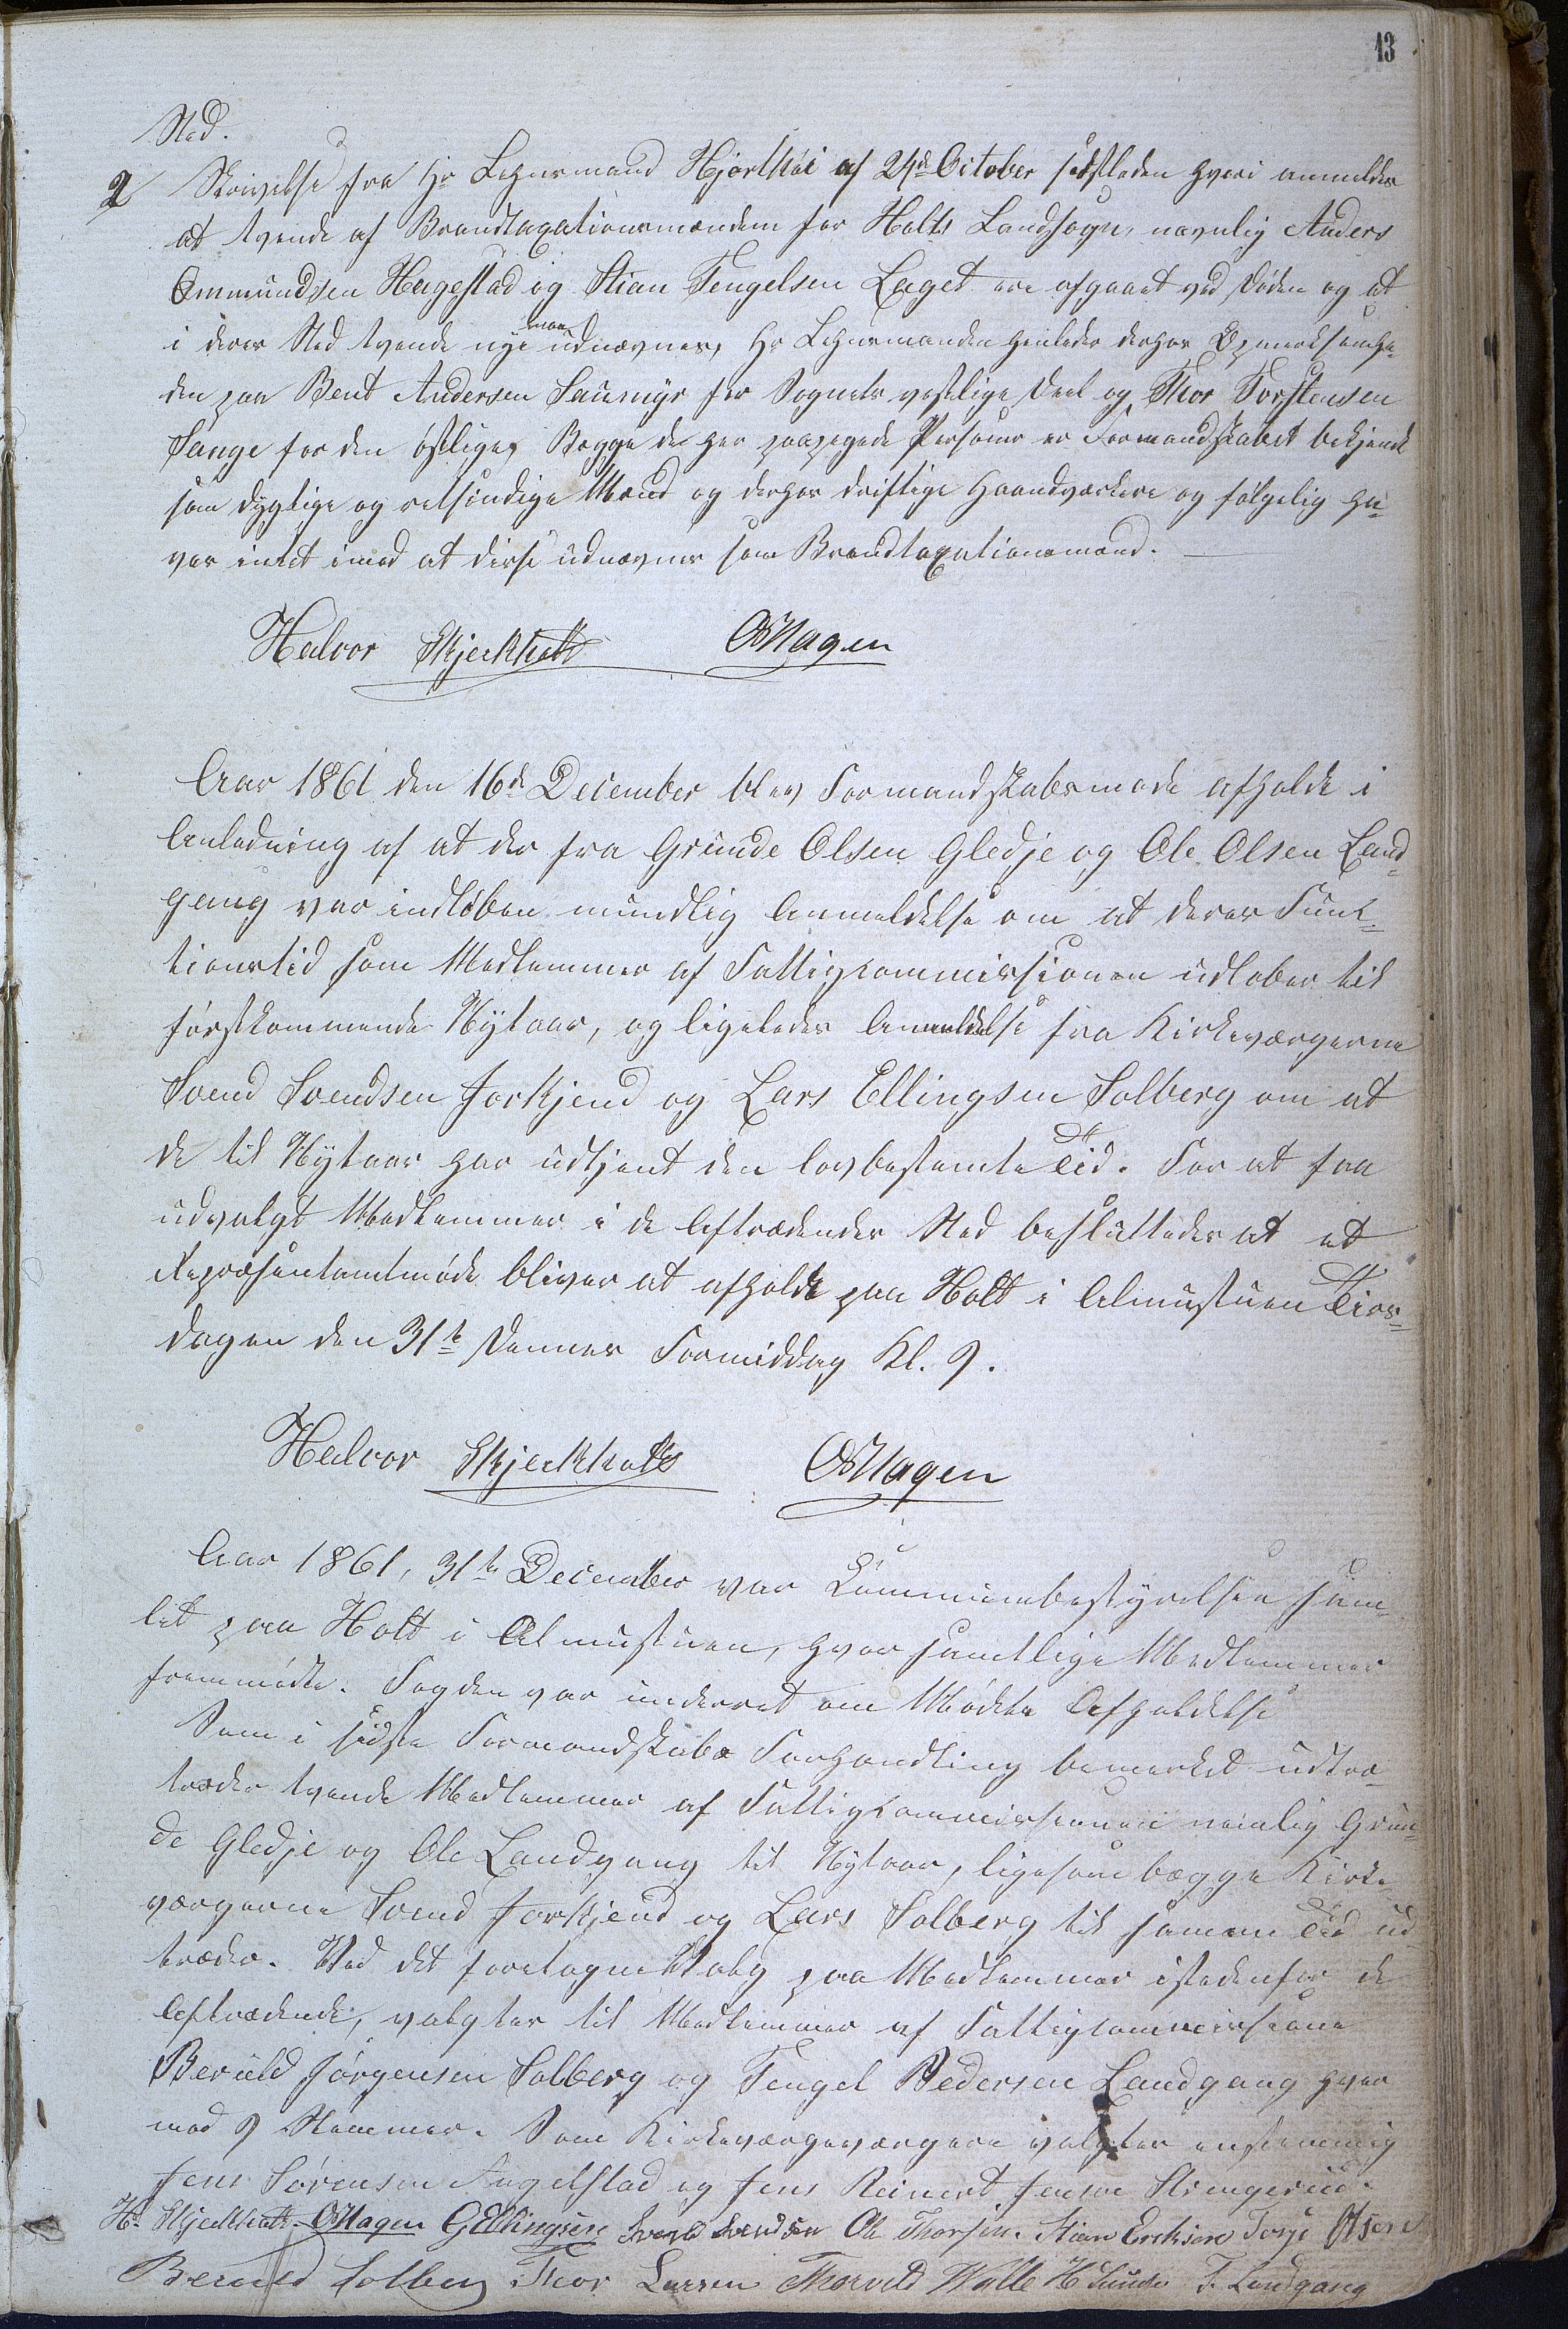 13
Sted.
2 Skrivelse fra Hr Lehnsmand Hjorthøi af 24de October sidstleden hvori anmeldes
at tvende af Brandtaxationsmændene for Holts Landsogn, navnlig Anders
Ommundsen Hagestad og Stian Tengelsen Laget ere afgaaet ved Døden og at
i deres Sted tvende nye maa udnævnes, Hr Lehnsmanden henleder derhos Opmærksomhe-
den paa Bent Andersen Sauemyr for Sognets vestlige Deel og Thor Torstensen
Sange for den østlige, Begge de her paapegede Personer er Formandskabet bekjendt
som dygtige og retsindige Mænd og derhos driftige Haandværkere og følgelig ha-
ver intet imod at disse udnævnes som Brandtaxationsmænd.
Halvor Skjerkholt OHagen
Aar 1861 den 16de December blev Formandskabsmøde afholdt i
Anledning af at der fra Grunde Olsen Gledje og Ole Olsen Land-
gang var indløben mundtlig Anmeldelse om at deres Funk-
tionstid som Medlemmer af Fattigcommissionen udløber til
førstkommende Nytaar, og ligeledes Anmeldelse fra Kirkeværgerne
Svend Svendsen Forkjend og Lars Ellingsen Solberg om at
de til Nytaar har udtjent den lovbestemte Tid. For at faa
udvalgt Medlemmer i de Aftrædendes Sted besluttedes at et
Repræsentantmøde bliver at afholde paa Holt i Almustuen Tirs-
dagen den 31te Dennes Formiddag Kl. 9.
Halvor Skjerkholt OHagen
Aar 1861, 31te December var Kommunebestyrelsen sam-
let paa Holt i Almustuen, hvor samtlige Medlemmer
fremmødte. Fogden var underret om Mødets Afholdelse
Som i sidste Formandskabs Forhandling bemærket udtræ-
træder tvende Medlemmer af Fattigkommissionen nemlig Grun-
de Gledje og Ole Landgang til Nytaar, ligesom begge Kirke-
værgerne Svend Forkjend og Lars Solberg til samme Tid ud-
træder. Ved det foretagne Valg paa Medlemmer istedenfor de
Aftrædende, valgtes til Medlemmer af Fattigcommissione
Beruld Jørgensen Solberg og Tengel Pedersen Landgang hver
med 9 Stemmer. Som Kirkeværgeværgere valgtes enstemmig
Jens Sørensen Angelstad og Jens Reinert Jensen Strengerud.
H. Skjerkholt OHagen GEllingsen Svend Svendsen Ole Thorsen. Stian Eriksen Torje Olsen
Beruld Solberg Thor Larsen Thorvald Walle H Sunde T. Landgang